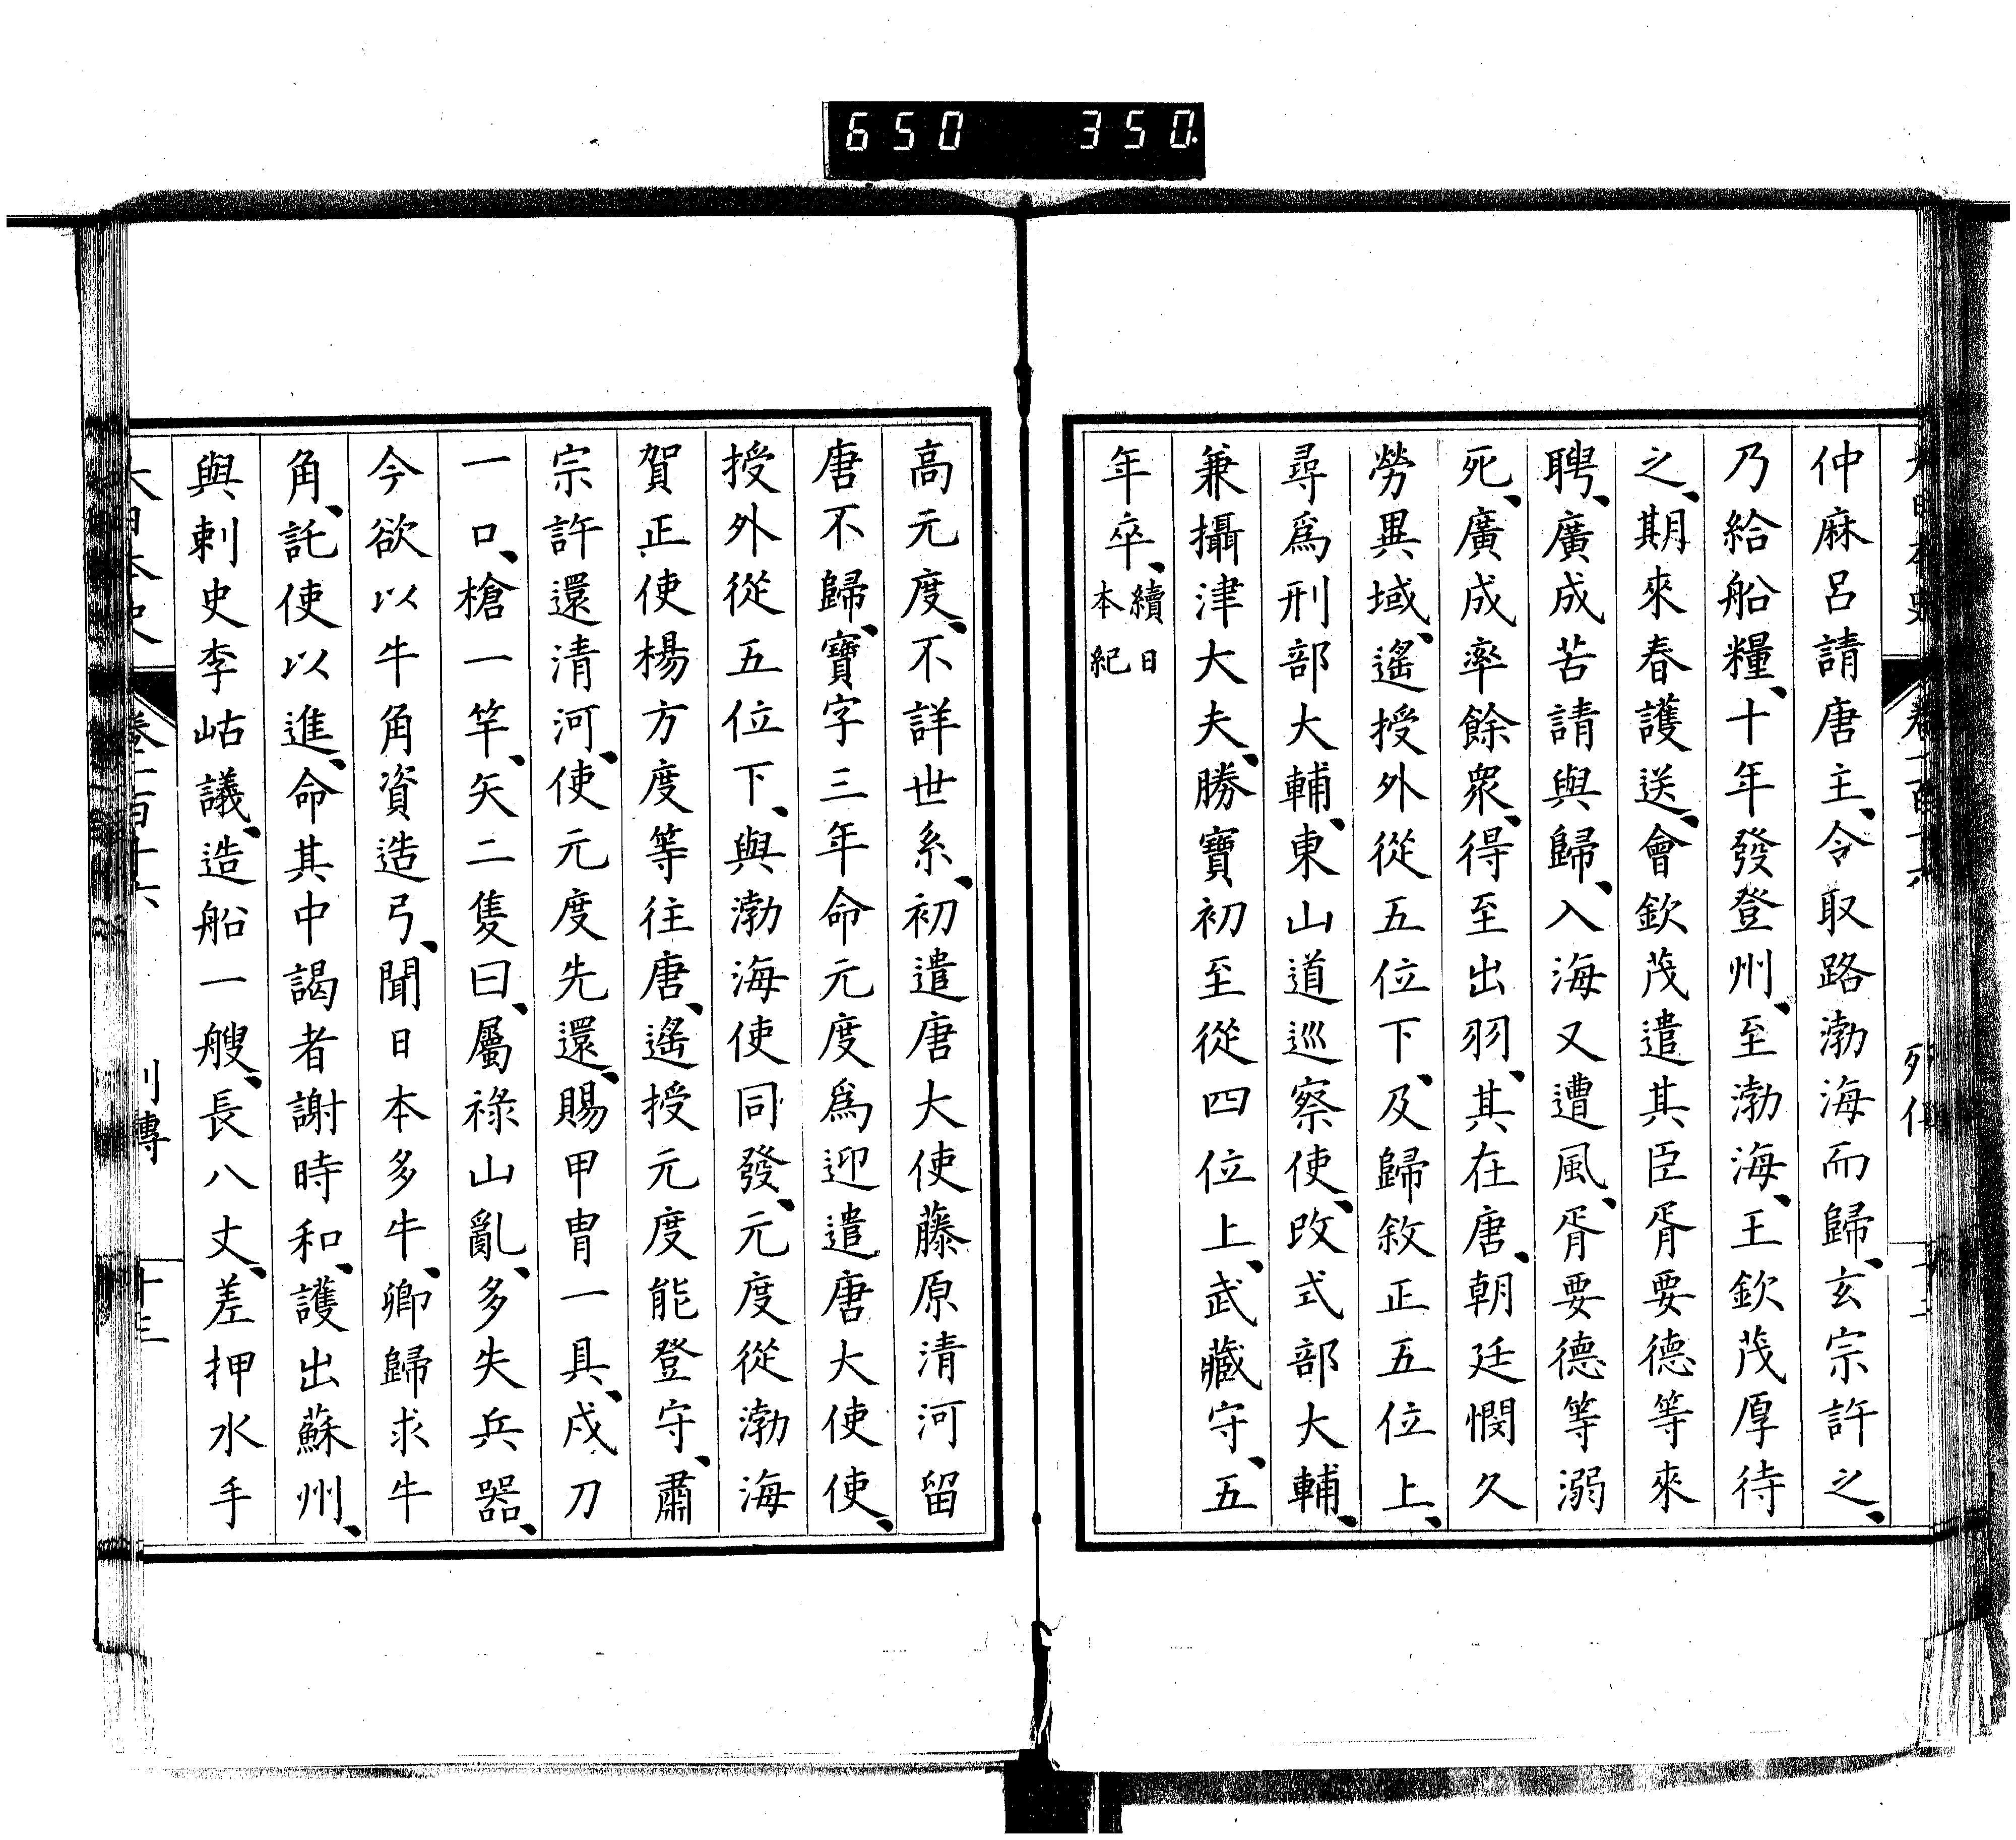 650 350
仲麻呂請唐主、令取路渤海而歸、玄宗許之、
乃給船糧、十年發登州、至渤海、王欽茂厚待
之、期來春護送、會欽茂遣其臣胥要德等來
聘、廣成苦請與歸、入海又遭風、胥要德等溺
死、廣成率餘衆、得至出羽、其在唐、朝廷憫久
勞異域、遙授外從五位下、及歸敘正五位上、
尋爲刑部大輔、東山道巡察使、改式部大輔、
兼攝津大夫、勝寶初至從四位上、武藏守、五
年卒、續日本紀
高元度、不詳世系、初遣唐大使藤原清河留
唐不歸、寶字三年命元度爲迎遣唐大使使、
授外從五位下、與渤海使同發、元度從渤海
賀正使楊方度等往唐、遙授元度能登守、肅
宗許還清河、使元度先還、賜甲冑一具、戍刀
一口、槍一竿、矢二隻曰、屬祿山亂、多失兵器、
今欲以牛角資造弓、聞日本多牛、卿歸求牛
角、託使以進、命其中謁者謝時和、護出蘇州、
與刺史李岵議、造船一艘、長八丈、差押水手
大日本史 卷二百十六 列傳 十三